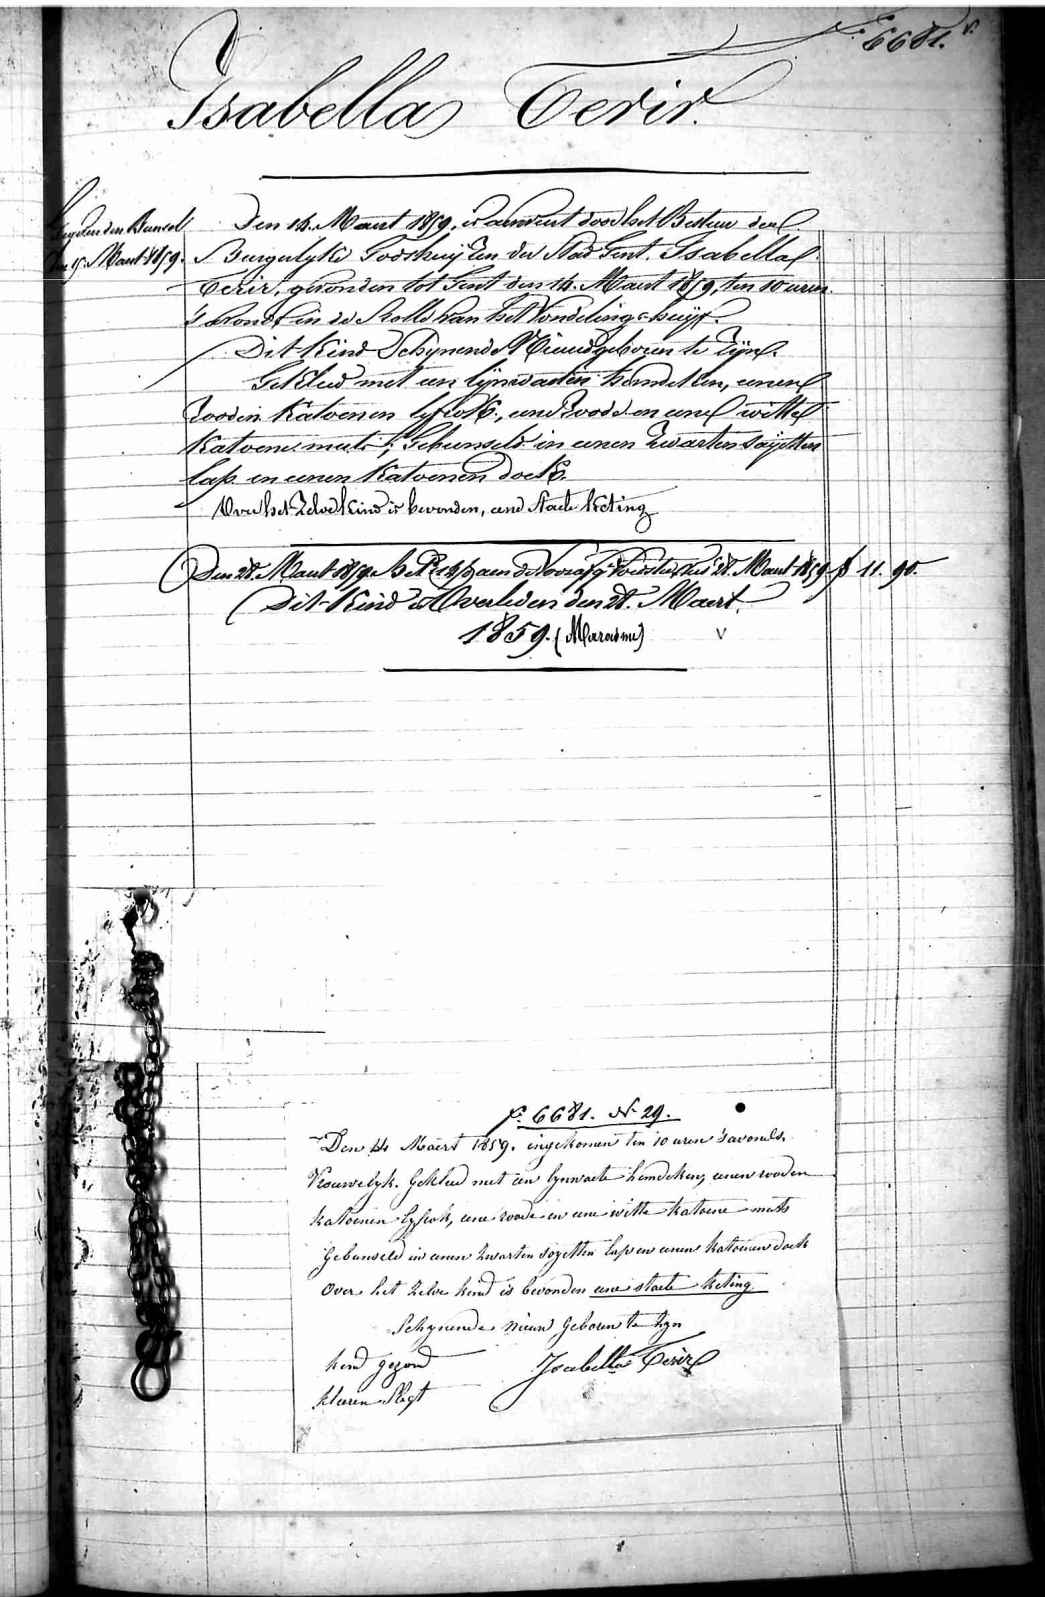 F. 6681. v.
Isabella Terir.
den 15. Maert 1859.
Den 14. Maert 1859. is aenveert door het Bestuer der
Burgerlyke Godshuyzen der Stad Gent. Isabella
Terir, gevonden tot Gent den 14. Maert 1859, ten 10 uren
's avonds in de Rolle van het Vondelings-huys.
Dit Kind Schynende Nieuwgeboren te Zyn.
Gekleed met een lynwaeten hemdeken, eenen
Rooden Katoenen lyfrok, eene Roode en eene witte
Katoene muts; Gebunseld in eenen Zwarten sayetten
lap en eenen Katoenen doek.
Over het Zelve Kind is bevonden, eene Staele Keting
Den 28. Maert 1859. 28. Maert 1859 f 11. 90.
Dit Kind is Overleden den 28. Maert.
1859. (Marasme) v
F. 6681. N. 29.
Den 14 Maert 1859. ingekomen ten 10 uren 'savonds.
Vrouwelyk. Gekleed met een lynwaete hemdeken, eenen rooden
katoenen Lyfrok, eene roode en eene witte katoene muts
Gebunseld in eenen zwarten sayetten lap en eenen katoenen doek
Over het zelve kind is bevonden eene staele keting
Schynende nieuw Geboren te zyn
kind gezond Isabella Terir
kleeren Slegt